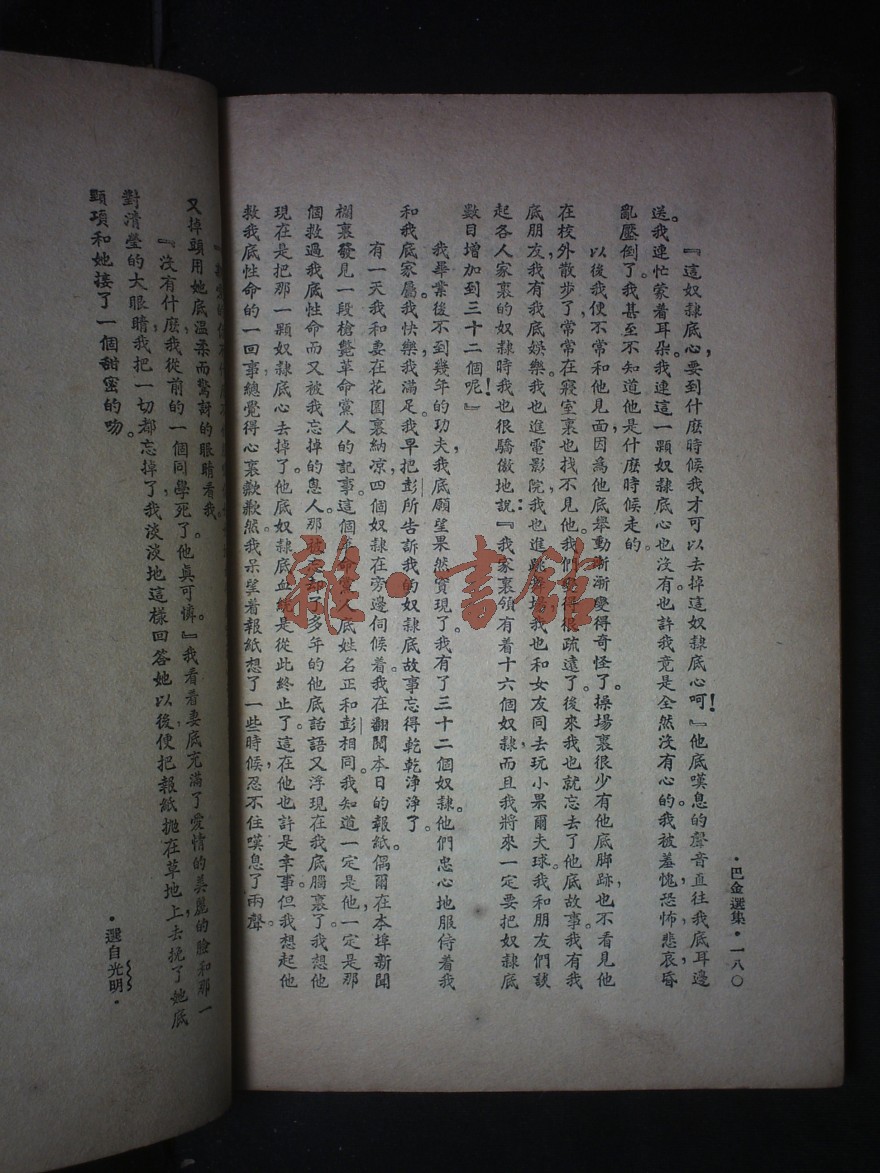 •巴金選集•一八〇
『這奴隸底心，要到什麼時候我才可以去掉這奴隸底心呵！』他底嘆息的聲音直往我底耳邊
送。我連忙蒙着耳朵。我連這一顆奴隸底心也沒有也許我竟是全然沒有心的。我被羞愧，恐怖，悲哀，昏
亂壓倒了。我甚至不知道他是什麼時候走的。
以後我便不常和他見面，因爲他底舉動漸漸變得奇怪了。操場裏很少有他底脚跡，也不看見他
在校外散步了，常常在寢室裏也找不見他。我們變得很疏遠了。後來我也就忘去了他底故事。我有我
底朋友，我有我底娛樂。我也進電影院，我也進跳舞場，我也和女友同去玩小果爾夫球。我和朋友們談
起各人家裏的奴隸時，我也很驕傲地說：『我家裏領有着十六個奴隸，而且我將來一定要把奴隸底
數目增加到三十二個呢！』
我畢業後不到幾年的功夫，我底願望果然實現了。我有了三十二個奴隸。他們忠心地服侍着我
和我底家屬。我快樂，我滿足。我早把彭所告訴我的奴隸底故事忘得乾乾淨淨了。
有一天我和妻在花園裏納凉，四個奴隸在旁邊伺候着。我在翻閱本日的報紙，偶爾在本埠新聞
欄裏發見一段槍斃革命黨人的記事。這個革命黨人底姓名正和彭相同。我知道一定是他，一定是那
個救過我底性命而又被我忘掉的恩人。那被忘却了多年的他底話語又浮現在我底腦裏了。我想他
現在是把那一顆奴隸底心去掉了。他底奴隸底血統是從此終止了。這在他也許是幸事。但我想起他
救我底性命的一回事，總覺得心裏歉歉然。我呆望着報紙想了一些時候，忍不住嘆息了兩聲。
又掉頭用她底温柔而驚訝的眼睛看我。
『沒有什麼，我從前的一個同學死了，他眞可憐。』我看着妻底充滿了愛情的美麗的臉和那一
對清瑩的大眼睛，我把一切都忘掉了。我淡淡地這樣回答她以後，便把報紙抛在草地上，去挽了她底
頸項和她接了一個甜蜜的吻。
•選自光明•
雜·書館